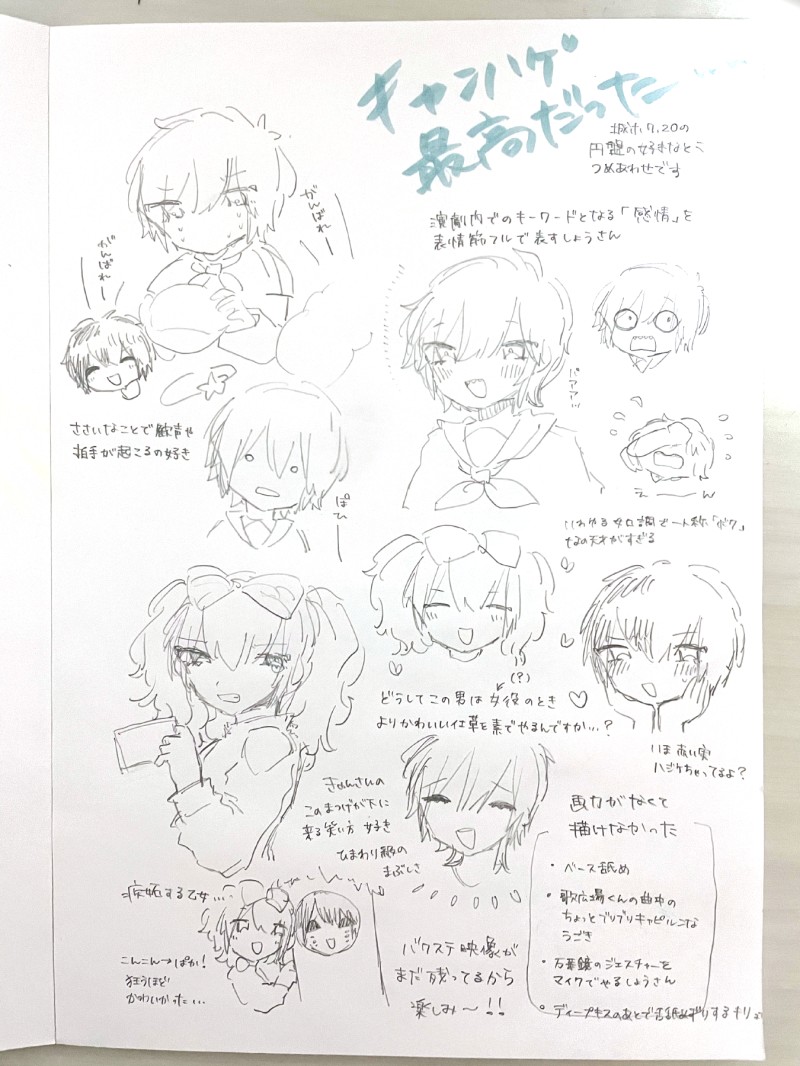 キャンハゲ
最高だった…
城ホ7.20の
円盤の好きなとこ
つめあわせです
がんばれー
がんばれー
ささいなことで歓声や
拍手が起こるの好き
演劇内でのキーワードとなる「感情」を
表情筋フルで表すしょうさん
パアアアッ
えーーん
ぱひー
いわゆる女口調で一人称「ボク」
なの天才がすぎる
(?)
どうしてこの男は女役のとき
よりかわいい仕草を素でやるんですか…?
いま 赤い実
ハジケちゃってるよ?
きゃんさいの
このまつげが下に
来る笑い方 好き
ひまわり級の
まぶしさ
画力がなくて
描けなかった
・ベース舐め
・歌広場くんの曲中の
ちょっとブリブリキャピルンな
うごき
・万華鏡のジェスチャーを
マイクでやるしょうさん
・ディープキスのあとで舌舐めずりするキリ
嫉妬する乙女…
こんこん→ぱか!
狂うほど
かわいかった…
バクステ映像が
まだ残ってるから
楽しみ〜!!